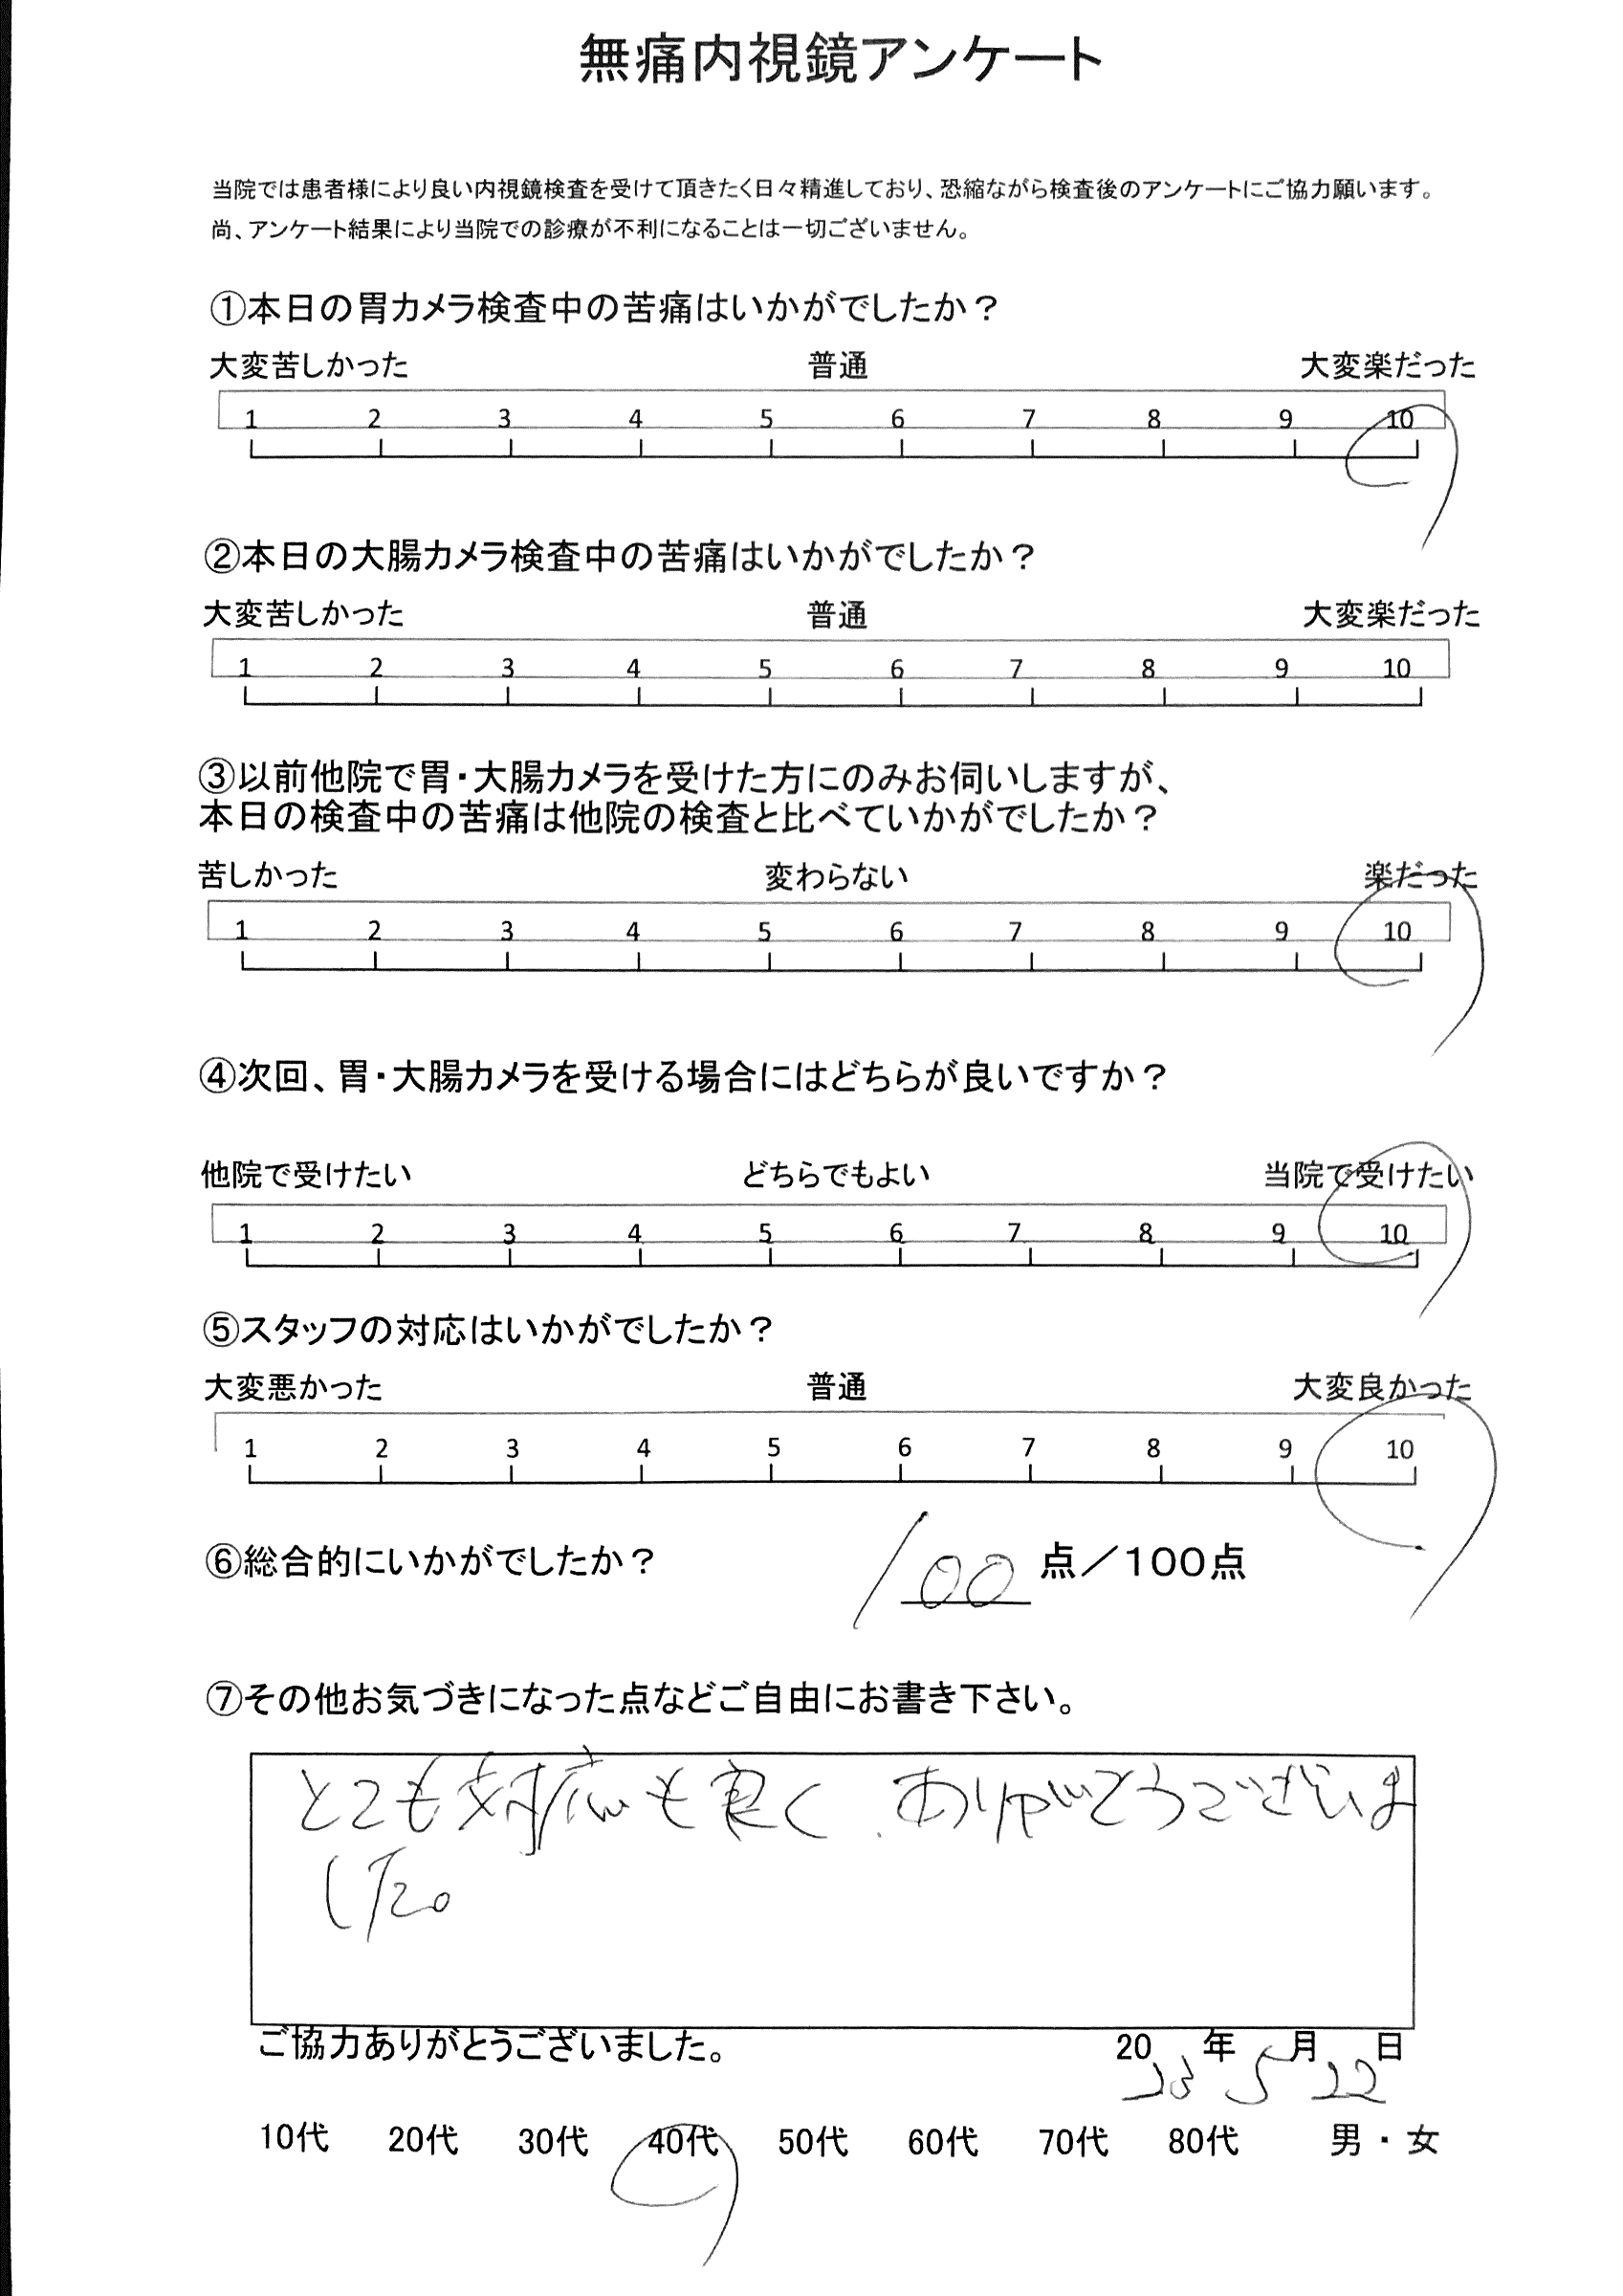 無痛内視鏡アンケート
当院では患者様により良い内視鏡検査を受けて頂きたく日々精進しており、恐縮ながら検査後のアンケートにご協力願います。
尚、アンケート結果により当院での診療が不利になることは一切ございません。
①本日の胃カメラ検査中の苦痛はいかがでしたか？
大変苦しかった 普通 大変楽だった
1 2 3 4 5 6 7 8 9 10
②本日の大腸カメラ検査中の苦痛はいかがでしたか？
大変苦しかった 普通 大変楽だった
1 2 3 4 5 6 7 8 9 10
③以前他院で胃・大腸カメラを受けた方にのみお伺いしますが、
本日の検査中の苦痛は他院の検査と比べていかがでしたか？
苦しかった 変わらない 楽だった
1 2 3 4 5 6 7 8 9 10
④次回、胃・大腸カメラを受ける場合にはどちらが良いですか？
他院で受けたい どちらでもよい 当院で受けたい
1 2 3 4 5 6 7 8 9 10
⑤スタッフの対応はいかがでしたか？
大変悪かった 普通 大変良かった
1 2 3 4 5 6 7 8 9 10
⑥総合的にいかがでしたか？ 100 点／100点
⑦その他お気づきになった点などご自由にお書き下さい。
とても対応も良く、ありがとうございま
した。
ご協力ありがとうございました。 2023年5月22日
10代 20代 30代 40代 50代 60代 70代 80代 男・女